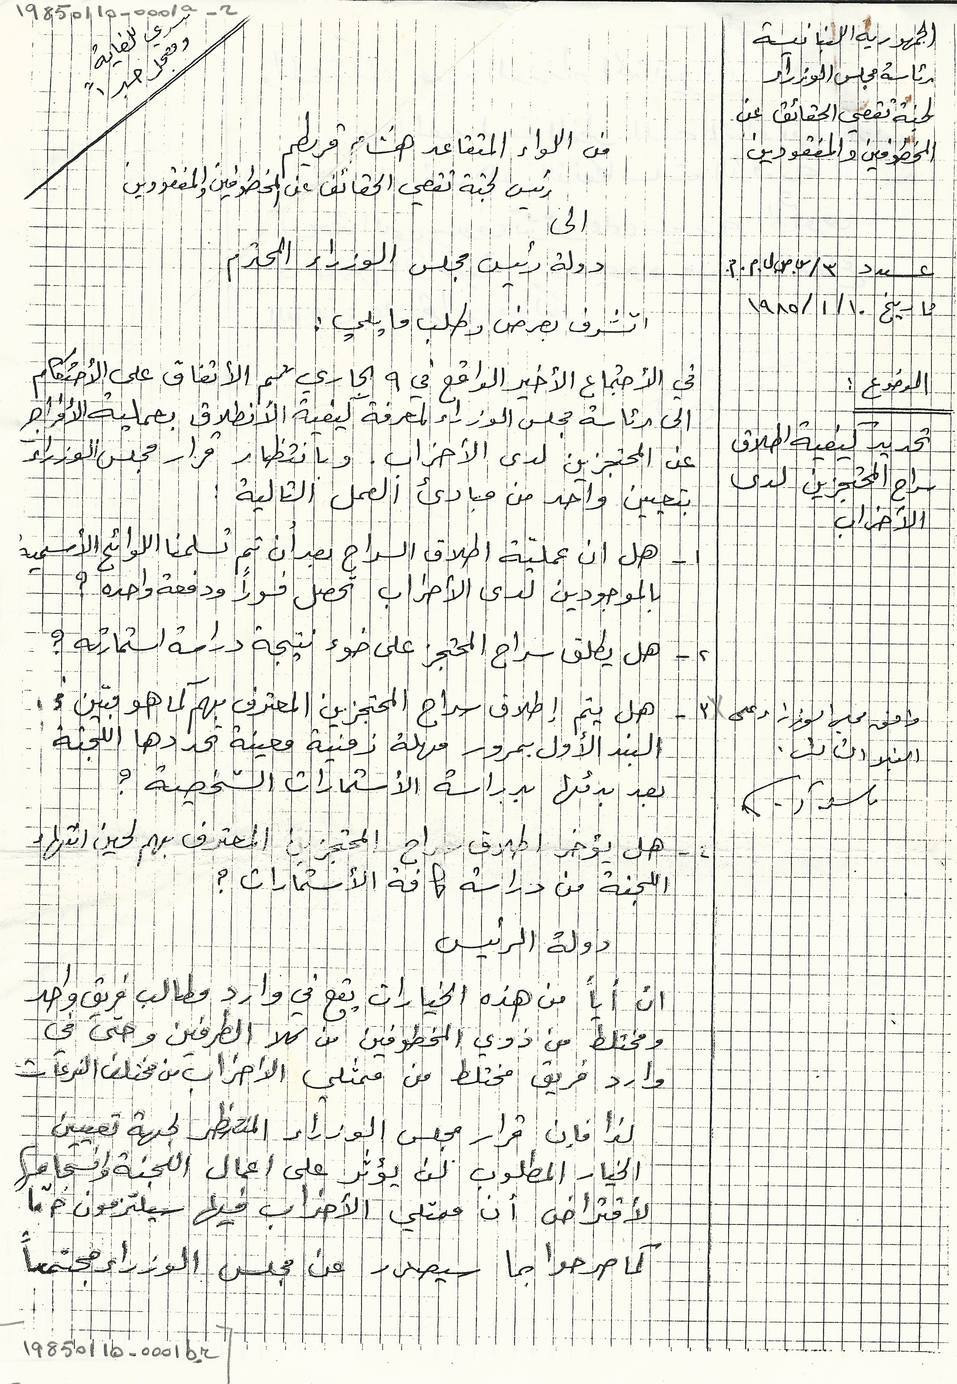 19850110-0001a-r
سري للغاية
ومعجل جداً
الجمهورية اللبنانية
رئاسة مجلس الوزراء
لجنة تقصي الحقائق عن
المخطوفين والمفقودين
من اللواء المتقاعد هشام قريطم
رئيس لجنة تقصي الحقائق عن المخطوفين والمفقودين
الى
دولة رئيس مجلس الوزراء المحترم
عدد ٣/
تاريخ ١٩٨٥/١/١٠
اتشرف بعرض وطلب ما يلي :
الموضوع :
تحديد كيفية اطلاق
سراح المحتجزين لدى
الأحزاب
في الأجتماع الأخير الواقع في ٩ الجاري تم الأتفاق على الأحتكام
الى رئاسة مجلس الوزراء لمعرفة كيفية الأنطلاق بعملية الأفراج
عن المحتجزين لدى الأحزاب ، وبانتظار قرار مجلس الوزراء
بتعيين واحد من مبادئ العمل التالية :
١ - هل ان عمليّة اطلاق السراح بعد أن تم تسلمنا اللوائح الأسمية
بالموجودين لدى الأحزاب تحصل فوراً ودفعة واحده ؟
٢ - هل يطلق سراح المحتجز على ضوء نتيجة دراسة استمارته ؟
٣ - هل يتم إطلاق سراح المحتجزين المعترف بهم كما هو مبيّن في
البند الأول بمرور مهلة زمنية معينة تحددها اللجنة
بعد بدئها بدراسة الأستمارات الشخصية ؟
وافق مجلس الوزراء على
البند الثالث
٤ - هل يؤخر اطلاق سراح المحتجزين المعترف بهم لحين انتهاء
اللجنة من دراسة كافة الأستمارات ؟
دولة الرئيس
ان أياً من هذه الخيارات يقع في وارد مطالب فريق واحد
ومختلط من ذوي المخطوفين من كلا الطرفين وحتى في
وارد فريق مختلط من ممثلي الأحزاب من مختلف النزعات
لذا فإن قرار مجلس الوزراء المنتظر لجهة تعيين
الخيار المطلوب لن يؤثر على اعمال اللجنة وانسجامها
لأفتراض أن ممثلي الأحزاب فيها سيلتزمون حتماً
كما صرحوا بما سيصدر عن مجلس الوزراء مجتمعاً
19850110-0001b-r